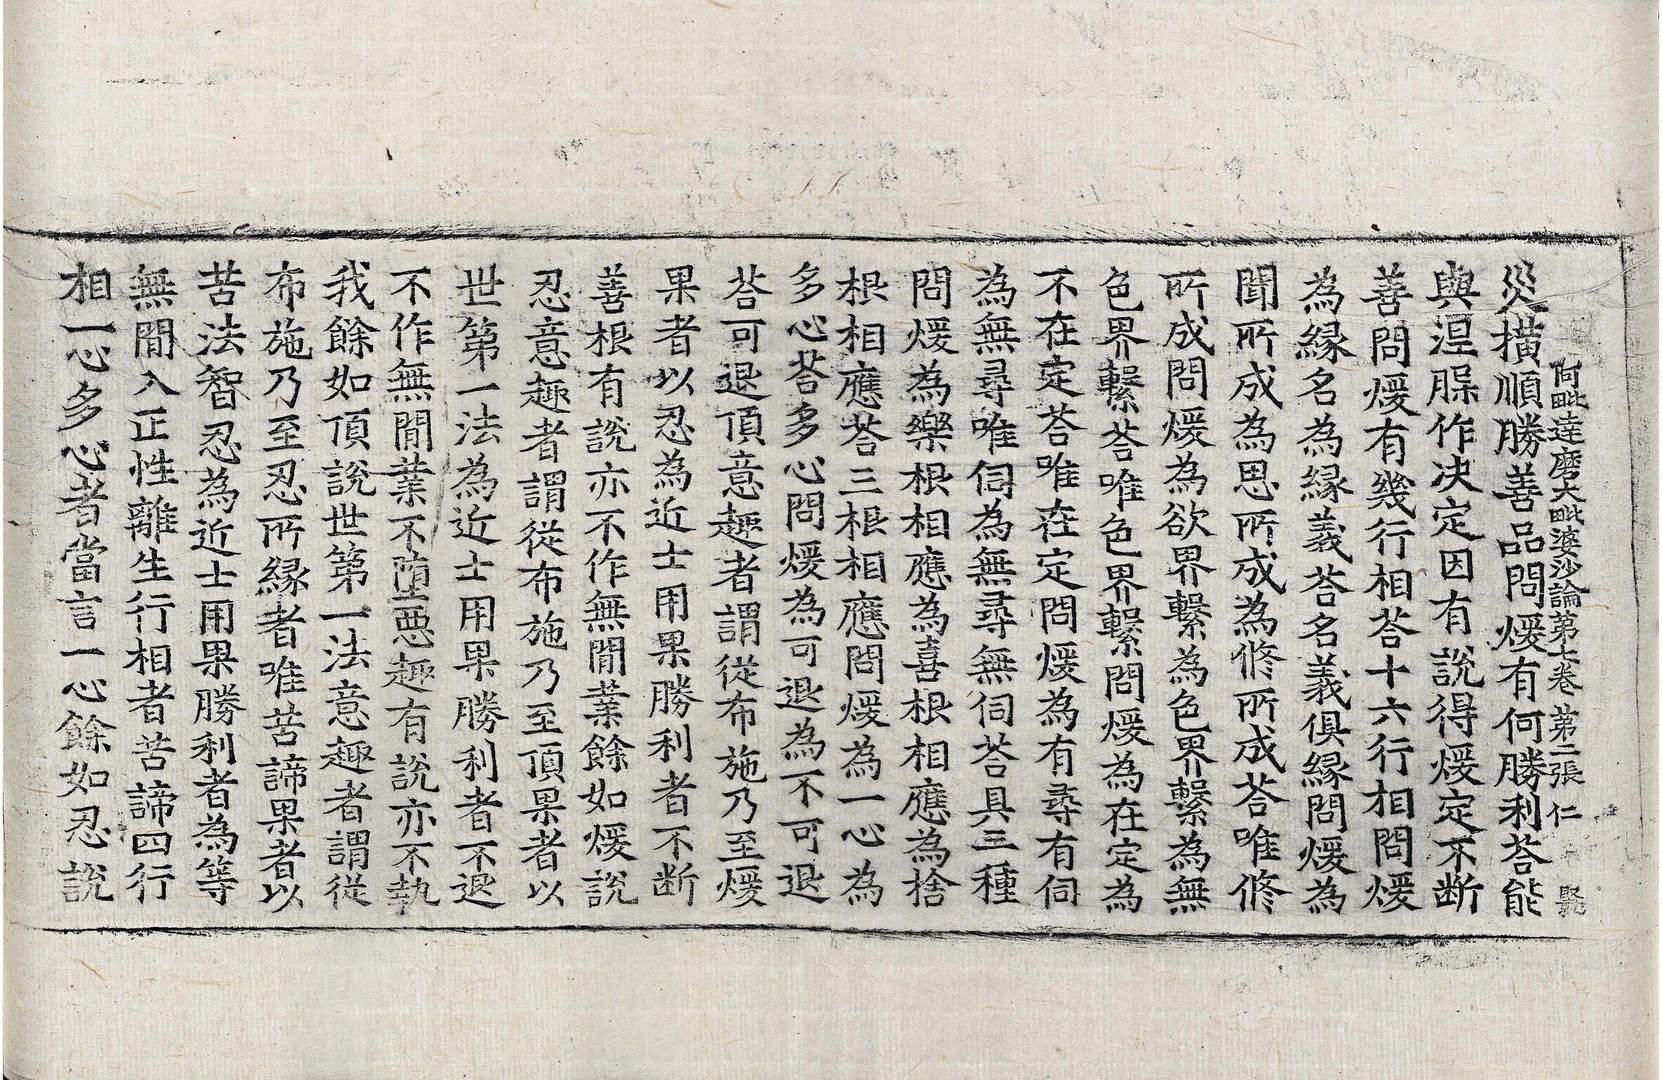 阿毗達磨大毗婆沙論第七卷 第二張 仁
災橫順勝善品問煗有何勝利荅能
與涅脲作决定因有說得煗定不断
善問煗有幾行相荅十六行相問煗
為緣名為緣義荅名義俱緣問煗為
聞所成為思所成為修所成荅唯修
所成問煗為欲界繫為色界繫為無
色界繫荅唯色界繫問煗為在定為
不在定荅唯在定問煗為有尋有伺
為無尋唯伺為無尋無伺荅具三種
問煗為樂根相應為喜根相應為捨
根相應荅三根相應問煗為一心為
多心荅多心問煗為可退為不可退
荅可退頂意趣者謂從布施乃至煗
果者以忍為近士用果勝利者不断
善根有說亦不作無間業餘如煗說
忍意趣者謂從布施乃至頂果者以
世第一法為近士用果勝利者不退
不作無間業不墮惡趣有說亦不執
我餘如頂說世第一法意趣者謂從
布施乃至忍所緣者唯苦諦果者以
苦法智忍為近士用果勝利者為等
無間入正性離生行相者苦諦四行
相一心多心者當言一心餘如忍說